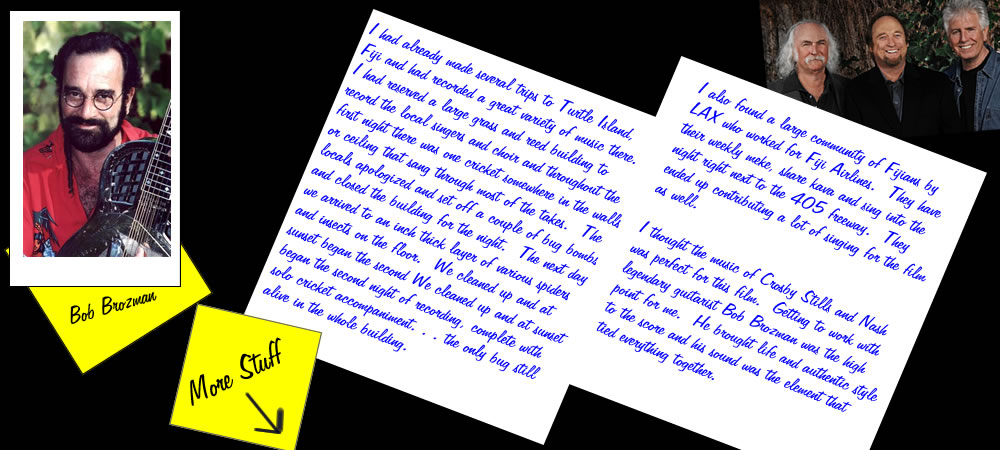 I had already made several trips to Turtle Island,
Fiji and had recorded a great variety of music there.
I had reserved a large grass and reed building to
record the local singers and choir and throughout the
first night there was one cricket somewhere in the walls
or ceiling that sang through most of the takes. The
locals apologized and set off a couple of bug bombs
and closed the building for the night. The next day
we arrived to an inch thick layer of various spiders
and insects on the floor. We cleaned up and at
sunset began the second We cleaned up and at sunset
began the second night of recording, complete with
solo cricket accompaniment. . . the only bug still
alive in the whole building.
I also found a large community of Fijians by
LAX who worked for Fiji Airlines. They have
their weekly meke, share kava and sing into the
night right next to the 405 freeway. They
ended up contributing a lot of singing for the film
as well.
I thought the music of Crosby Stills and Nash
was perfect for this film. Getting to work with
legendary guitarist Bob Brozman was the high
point for me. He brought life and authentic style
to the score and his sound was the element that
tied everything together.
Bob Brozman
More Stuff